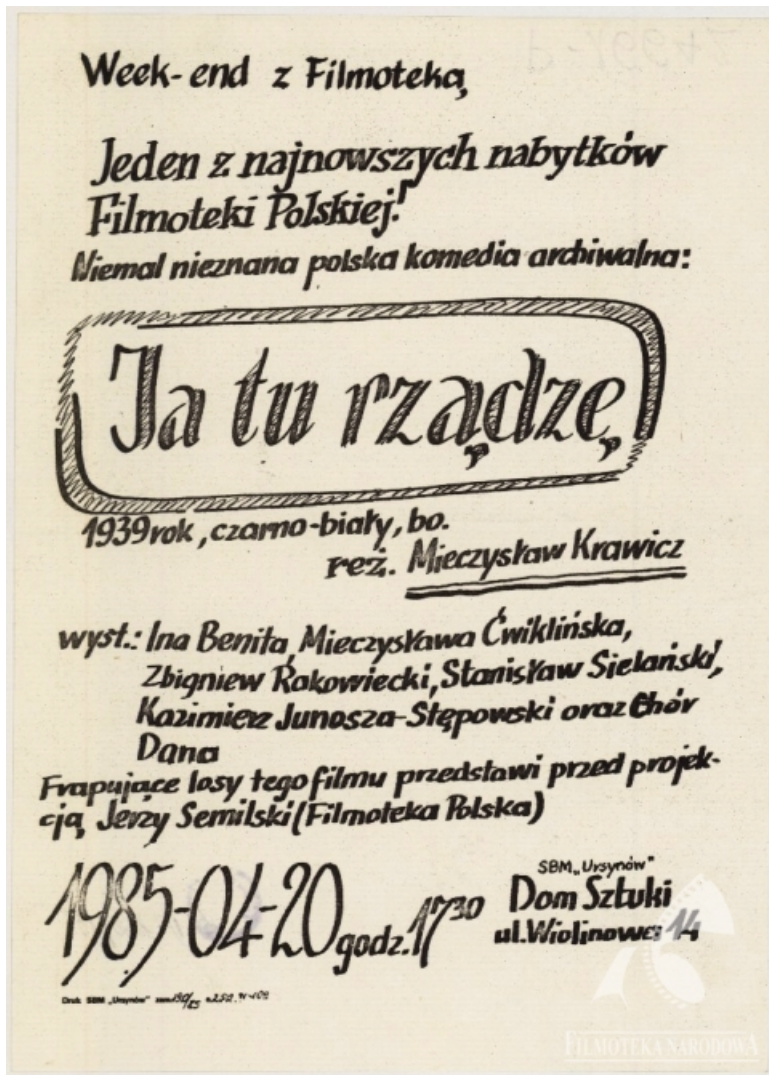 Week-end z Filmoteką
Jeden z najnowszych nabytków
Filmoteki Polskiej!
Niemal nieznana polska komedia archiwalna:
Ja tu rządzę
1939 rok, czarno-biały, bo.
reż. Mieczysław Krawicz
wyst.: Ina Benita, Mieczysława Ćwiklińska,
Zbigniew Rakowiecki, Stanisław Sielański,
Kazimierz Junosza-Stępowski oraz Chór
Dana
Frapujące losy tego filmu przedstawi przed projek-
cją Jerzy Semilski (Filmoteka Polska)
1985-04-20 godz. 17³⁰
SBM „Ursynów"
Dom Sztuki
ul. Wiolinowa 14
Druk SBM „Ursynów"
FILMOTEKA NARODOWA